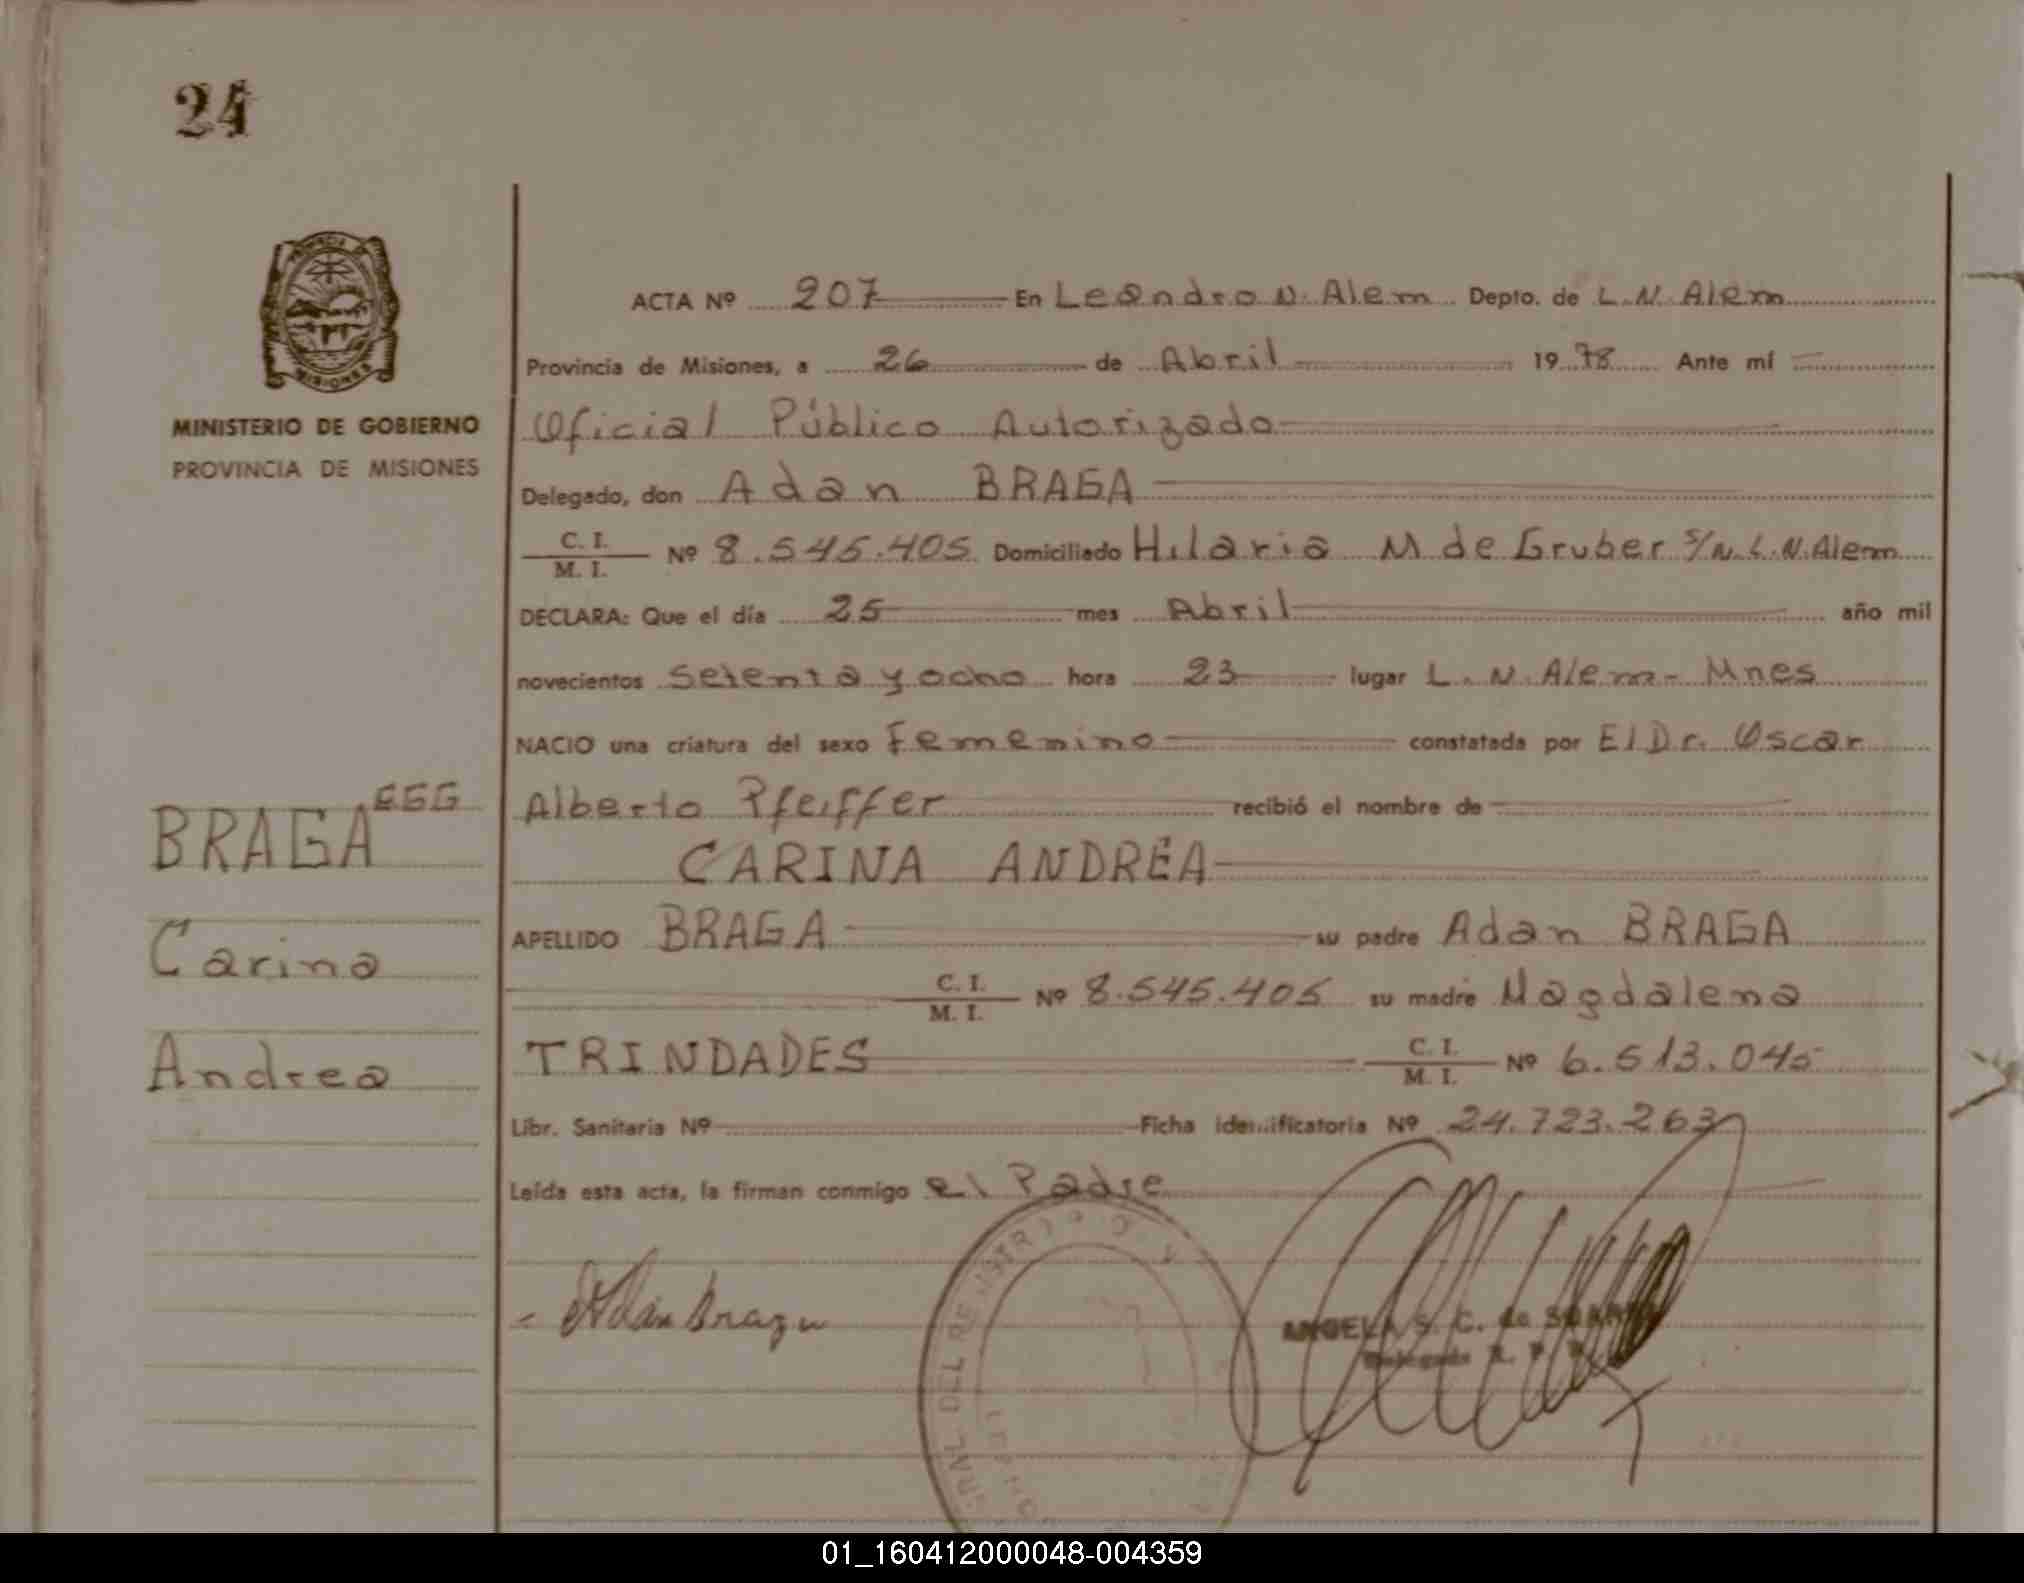 24
MINISTERIO DE GOBIERNO
PROVINCIA DE MISIONES
BRAGA
Carina
Andrea
ACTA Nº 207 En Leandro N. Alem Depto. de L. N. Alem
Provincia de Misiones, a 26 de Abril 1978 Ante mí
Oficial Público Autorizado
Delegado, don Adan BRAGA
C. I. / M. I. Nº 8.545.405 Domiciliado Hilaria M de Gruber S/N. L. N. Alem
DECLARA: Que el día 25 mes Abril año mil
novecientos setenta y ocho hora 23 lugar L. N. Alem - Mnes
NACIO una criatura del sexo Femenino constatada por El Dr. Oscar
Alberto Pfeiffer recibió el nombre de
CARINA ANDREA
APELLIDO BRAGA su padre Adan BRAGA
C. I. / M. I. Nº 8.545.405 su madre Magdalena
TRINDADES C. I. / M. I. Nº 6.513.045
Libr. Sanitaria Nº Ficha identificatoria Nº 24.723.263
Leída esta acta, la firman conmigo el Padre
Adan Braga
ANGELA S. C. de
01_160412000048-004359